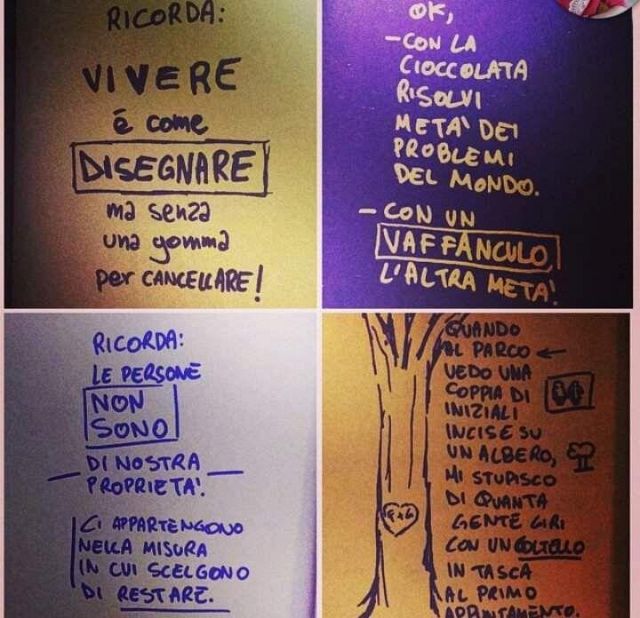 RICORDA:
VIVERE
é come
DISEGNARE
ma senza
una gomma
per CANCELLARE!
OK,
- CON LA
CIOCCOLATA
RISOLVI
META' DEI
PROBLEMI
DEL MONDO.
- CON UN
VAFFANCULO,
L'ALTRA META'.
RICORDA:
LE PERSONE
NON
SONO
DI NOSTRA
PROPRIETA'.
CI APPARTENGONO
NELLA MISURA
IN CUI SCELGONO
DI RESTARE.
QUANDO
AL PARCO
VEDO UNA
COPPIA DI
INIZIALI
INCISE SU
UN ALBERO,
MI STUPISCO
DI QUANTA
GENTE GIRI
CON UN COLTELLO
IN TASCA
AL PRIMO
APPUNTAMENTO.